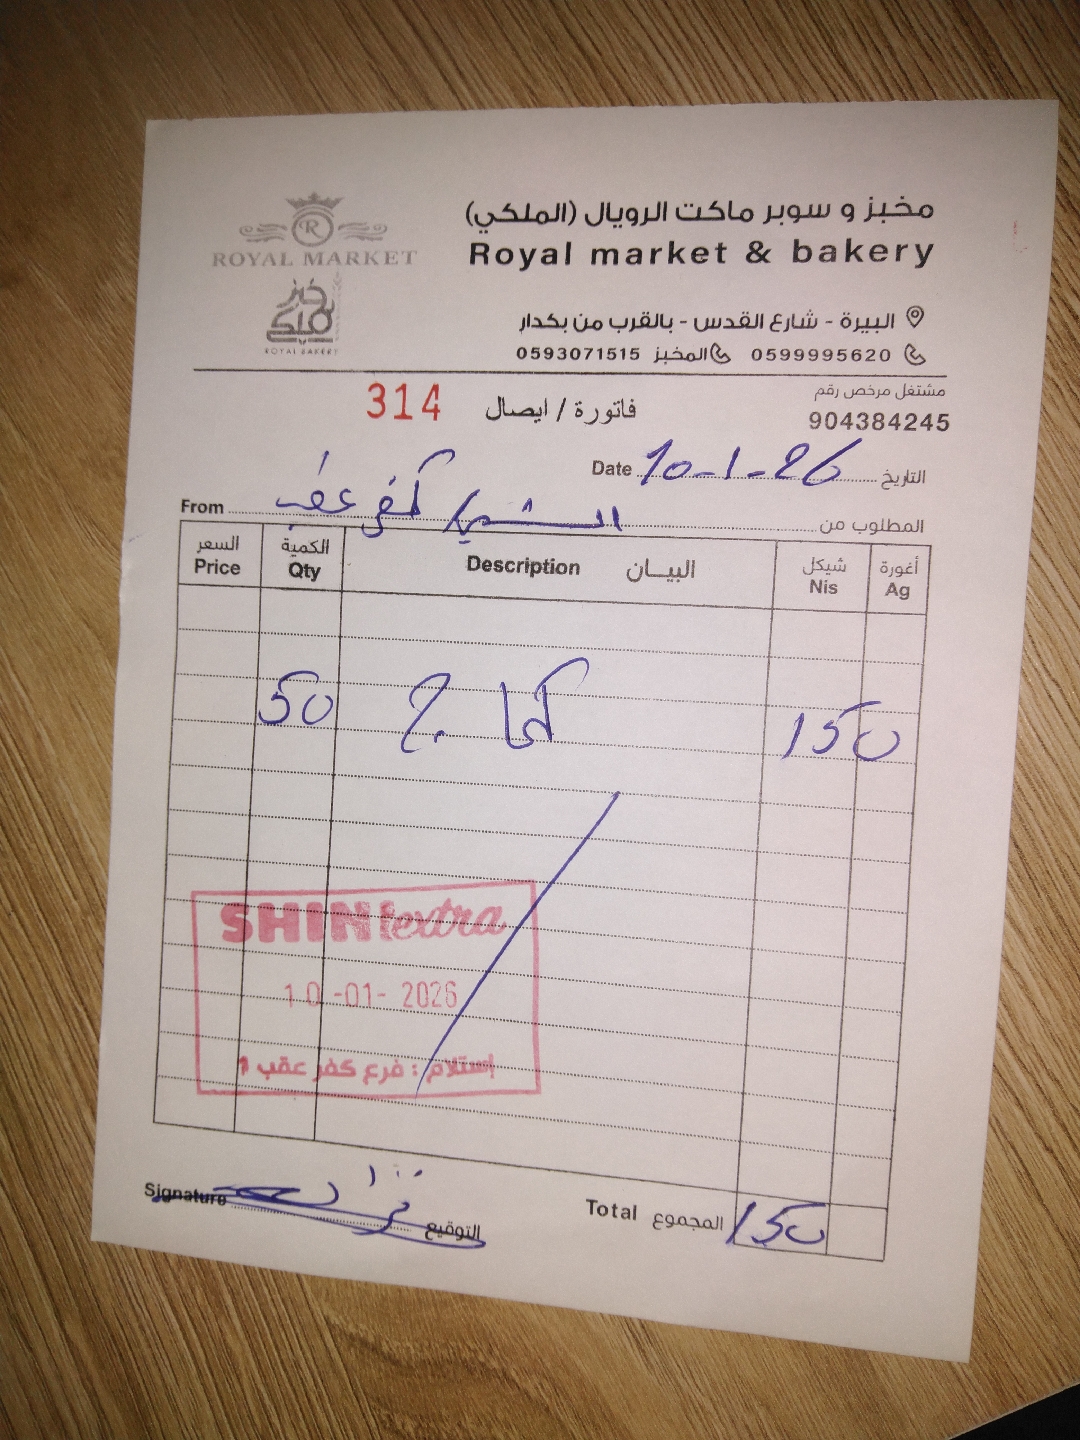 ROYAL MARKET
خبز ملكي
ROYAL BAKERY
مخبز و سوبر ماكت الرويال (الملكي)
Royal market & bakery
البيرة - شارع القدس - بالقرب من بكدار
0599995620 المخبز 0593071515
مشتغل مرخص رقم
904384245
فاتورة / ايصال 314
Date 10-1-26 التاريخ
From الشيني كفر عقب المطلوب من
السعر الكمية البيان شيكل أغورة
Price Qty Description Nis Ag
50 كماج 150
SHINI extra
10-01-2026
إستلام : فرع كفر عقب 1
Signature التوقيع
Total المجموع 150